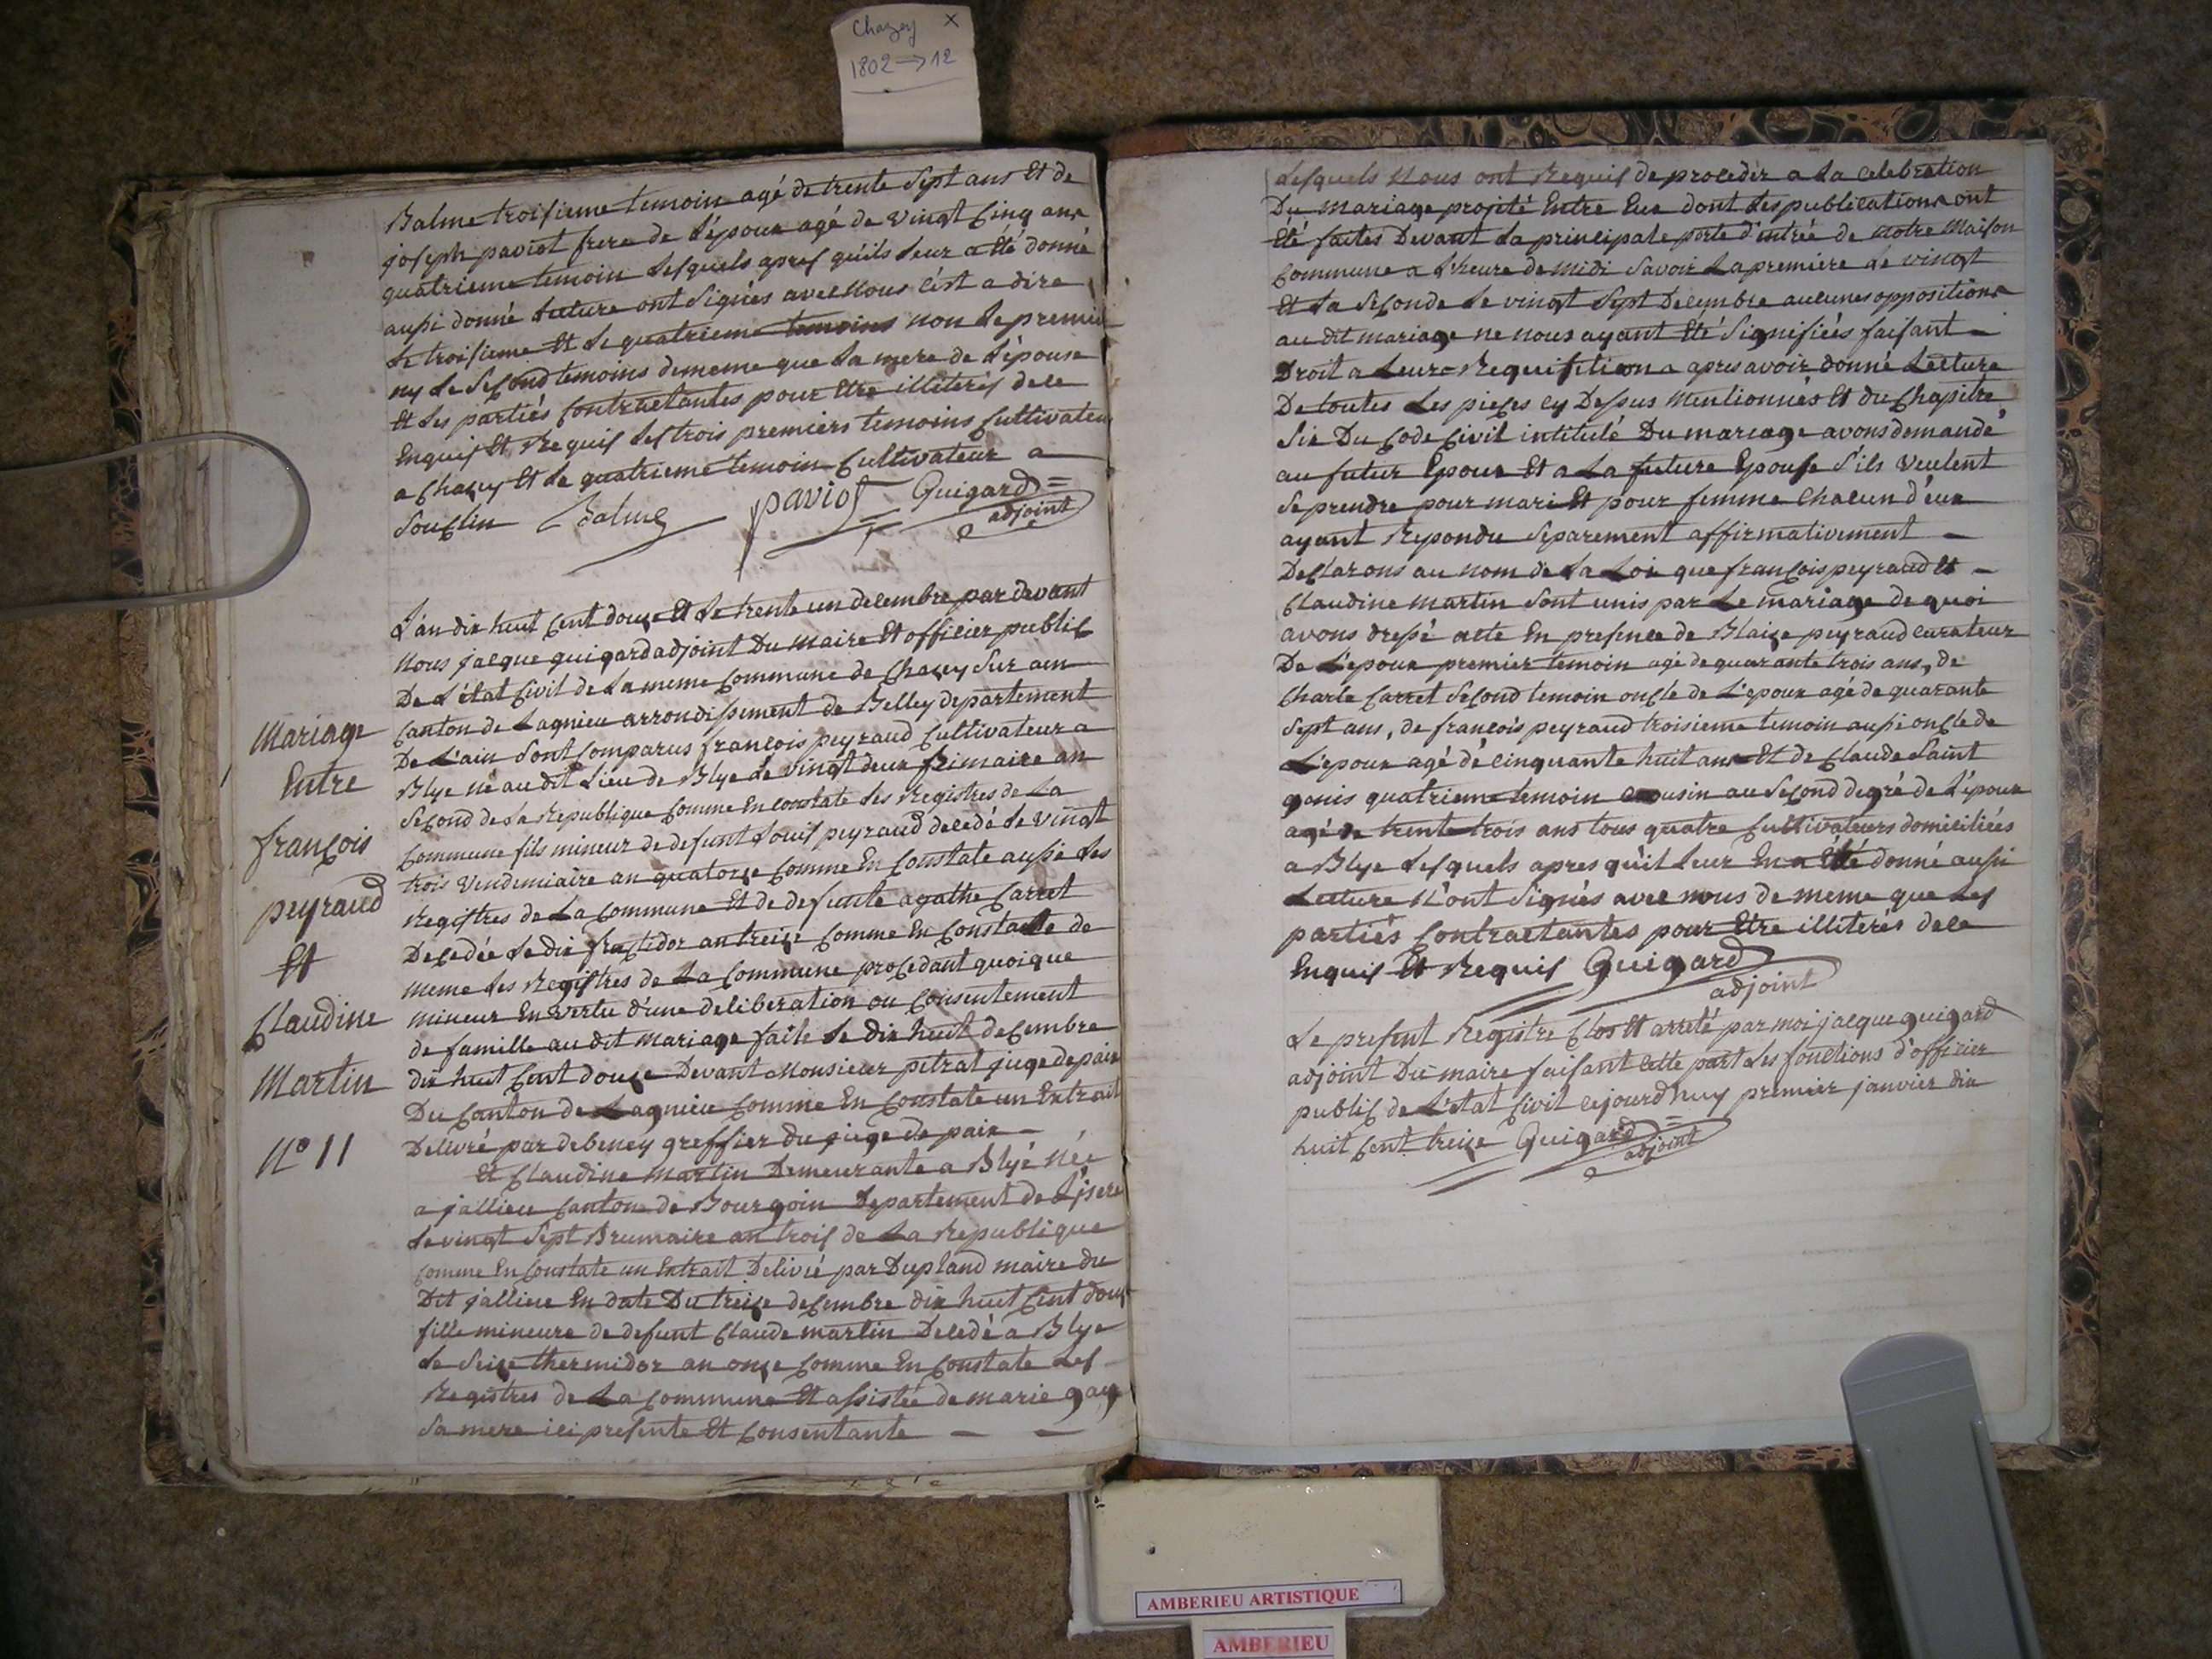 Chazey X
1802 → 12
Balme troisieme temoin agé de trente sept ans Et de
joseph paviot frere de L'épouse agé de vingt Cinq ans
quatrieme temoin Lesquels apres qu'ils Leur a été donné
aussi donné Lecture ont signés avec Nous c'est a dire
Le troisieme Et Le quatrieme temoins non Le premier
ny Le Second temoins de meme que La mere de L'épouse
Et Les partiés Contractantes pour Etre illiterés de ce
Enquis Et Requis Les trois premiers temoins Cultivateurs
a Chazey Et Le quatrieme temoin Cultivateur a
Souclin Balme paviot Guigard
adjoint
L'an dix huit Cent douze Et Le trente un decembre par devant
Nous jacque guigard adjoint Du Maire Et officier public
De L'état Civil de La meme Commune de Chazey Sur ain
Canton de Lagnieu arrondissement de Belley departement
De L'ain Sont Comparus françois peyraud Cultivateur a
Blye né au dit Lieu de Blye Le vingt deux frimaire an
Second de La Republique Comme En constate Les Registres de La
Commune fils mineur de defunt Louis peyraud decedé Le vingt
trois Vendemiaire an quatorze Comme En Constate aussi Les
Registres de La Commune Et de defunte agathe Carret
Decedée Le dix fructidor an treize Comme En Constate de
meme Les Registres de La Commune procedant quoique
mineur En vertu d'une deliberation ou Consentement
de famille au dit mariage faite Le Dix huit decembre
dix huit Cent douze Devant Monsieur pitrat juge de paix
Du Canton de Lagnieu Comme En Constate un Extrait
Delivré par debeney greffier du juge de paix
Et Claudine Martin Demeurante a Blye Née
a jallieu Canton de Bourgoin Departement de L'jsere
Le vingt Sept Brumaire an trois de La Republique
Comme En Constate un Extrait Delivré par Dupland maire du
Dit jallieu En date Du treize decembre dix huit Cent douze
fille mineure de defunt Claude martin Decedé a Blye
Le Seize thermidor an onze Comme En Constate Les
Registres de La Commune Et assistée de marie gay
Sa mere ici presente Et Consentante
Mariage
Entre
françois
peyraud
Et
Claudine
Martin
N° 11
Lesquels Nous ont Requis de proceder a La Celebration
Du Mariage projeté Entre Eux dont Les publications ont
Eté faites Devant La principale porte d'entrée de Notre Maison
Commune a L'heure de Midi Savoir La premiere Le vingt
Et La Seconde Le vingt Sept Decembre aucunes oppositions
au dit mariage ne nous ayant Eté Signifiées faisant
Droit a Leur Requisition apres avoir donné Lecture
De toutes Les pieces cy Dessus Mentionnées Et du Chapitre
Six Du Code Civil intitulé Du mariage avons demandé
au futur Epoux Et a La future Epouse S'ils Veulent
Se prendre pour mari Et pour femme Chacun d'eux
ayant Repondu Separement affirmativement
Declarons au nom de La Loi que françois peyraud Et
Claudine martin Sont unis par Le mariage de quoi
avons dressé acte En presence de Blaize peyraud curateur
De L'epoux premier temoin agé de quarante trois ans, de
Charle Carret Second temoin oncle de L'epoux agé de quarante
Sept ans, de françois peyraud troisieme temoin aussi oncle de
L'epoux agé de cinquante huit ans Et de Claude Saint
genis quatrieme temoin cousin au Second degré de L'épouse
agé de trente trois ans tous quatre Cultivateurs domiciliées
a Blye Lesquels apres qu'il Leur En a Eté donné aussi
Lecture N'ont Signés avec nous de meme que Les
partiés Contractantes pour Etre illiterés de ce
Enquis Et Requis Guigard
adjoint
Le present Registre Clos Et arreté par moi jacque guigard
adjoint Du maire faisant cette part Les fonctions d'officier
public de L'etat Civil cejourd'huy premier janvier dix
huit Cent treize Guigard
adjoint
AMBERIEU ARTISTIQUE
AMBERIEU